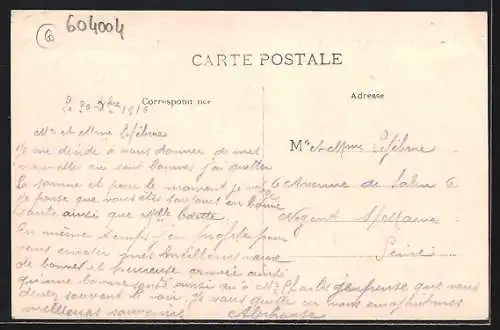 604004
CARTE POSTALE
Correspondance
Adresse
Le 30-Xbre 1916
Mr et Mme Lefebvre
Je me décide à vous donner de mes
nouvelles qui sont bonnes j'ai quitter
la somme et pour le moment je
je pense que vous êtes toujours en bonne
santé ainsi que Mlle Odette
En même temps j'en profite pour
vous envoyer mes meilleurs vœux
de bonne et heureuse année ainsi
bonne santé ainsi qu'à Mr Charles je pense que vous
devez souvent le voir. Je vous quitte en vous
meilleurs souvenirs Alphonse
Mr et Mme Lefebvre
6 Avenue de 6
Nogent S/Marne
Seine